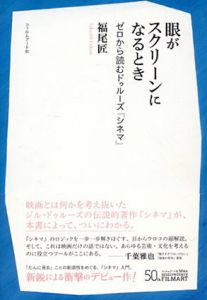 眼が
スクリーンに
なるとき
ゼロから読むドゥルーズ『シネマ』
福尾 匠
フィルムアート社
映画とは何かを考え抜いた
ジル・ドゥルーズの伝説的著作『シネマ』が、
本書によって、ついにわかる。
『シネマ』のロジックを一歩一歩解きほぐす、目からウロコの超解説。
そして、これは映画だけの話ではない。あらゆる芸術・文化を考えるのに
役立つツールがここにある。
千葉雅也
「たんに見る」ことの創造性をめぐる、『シネマ』入門。
新鋭による衝撃のデビュー作!
50
FILMART